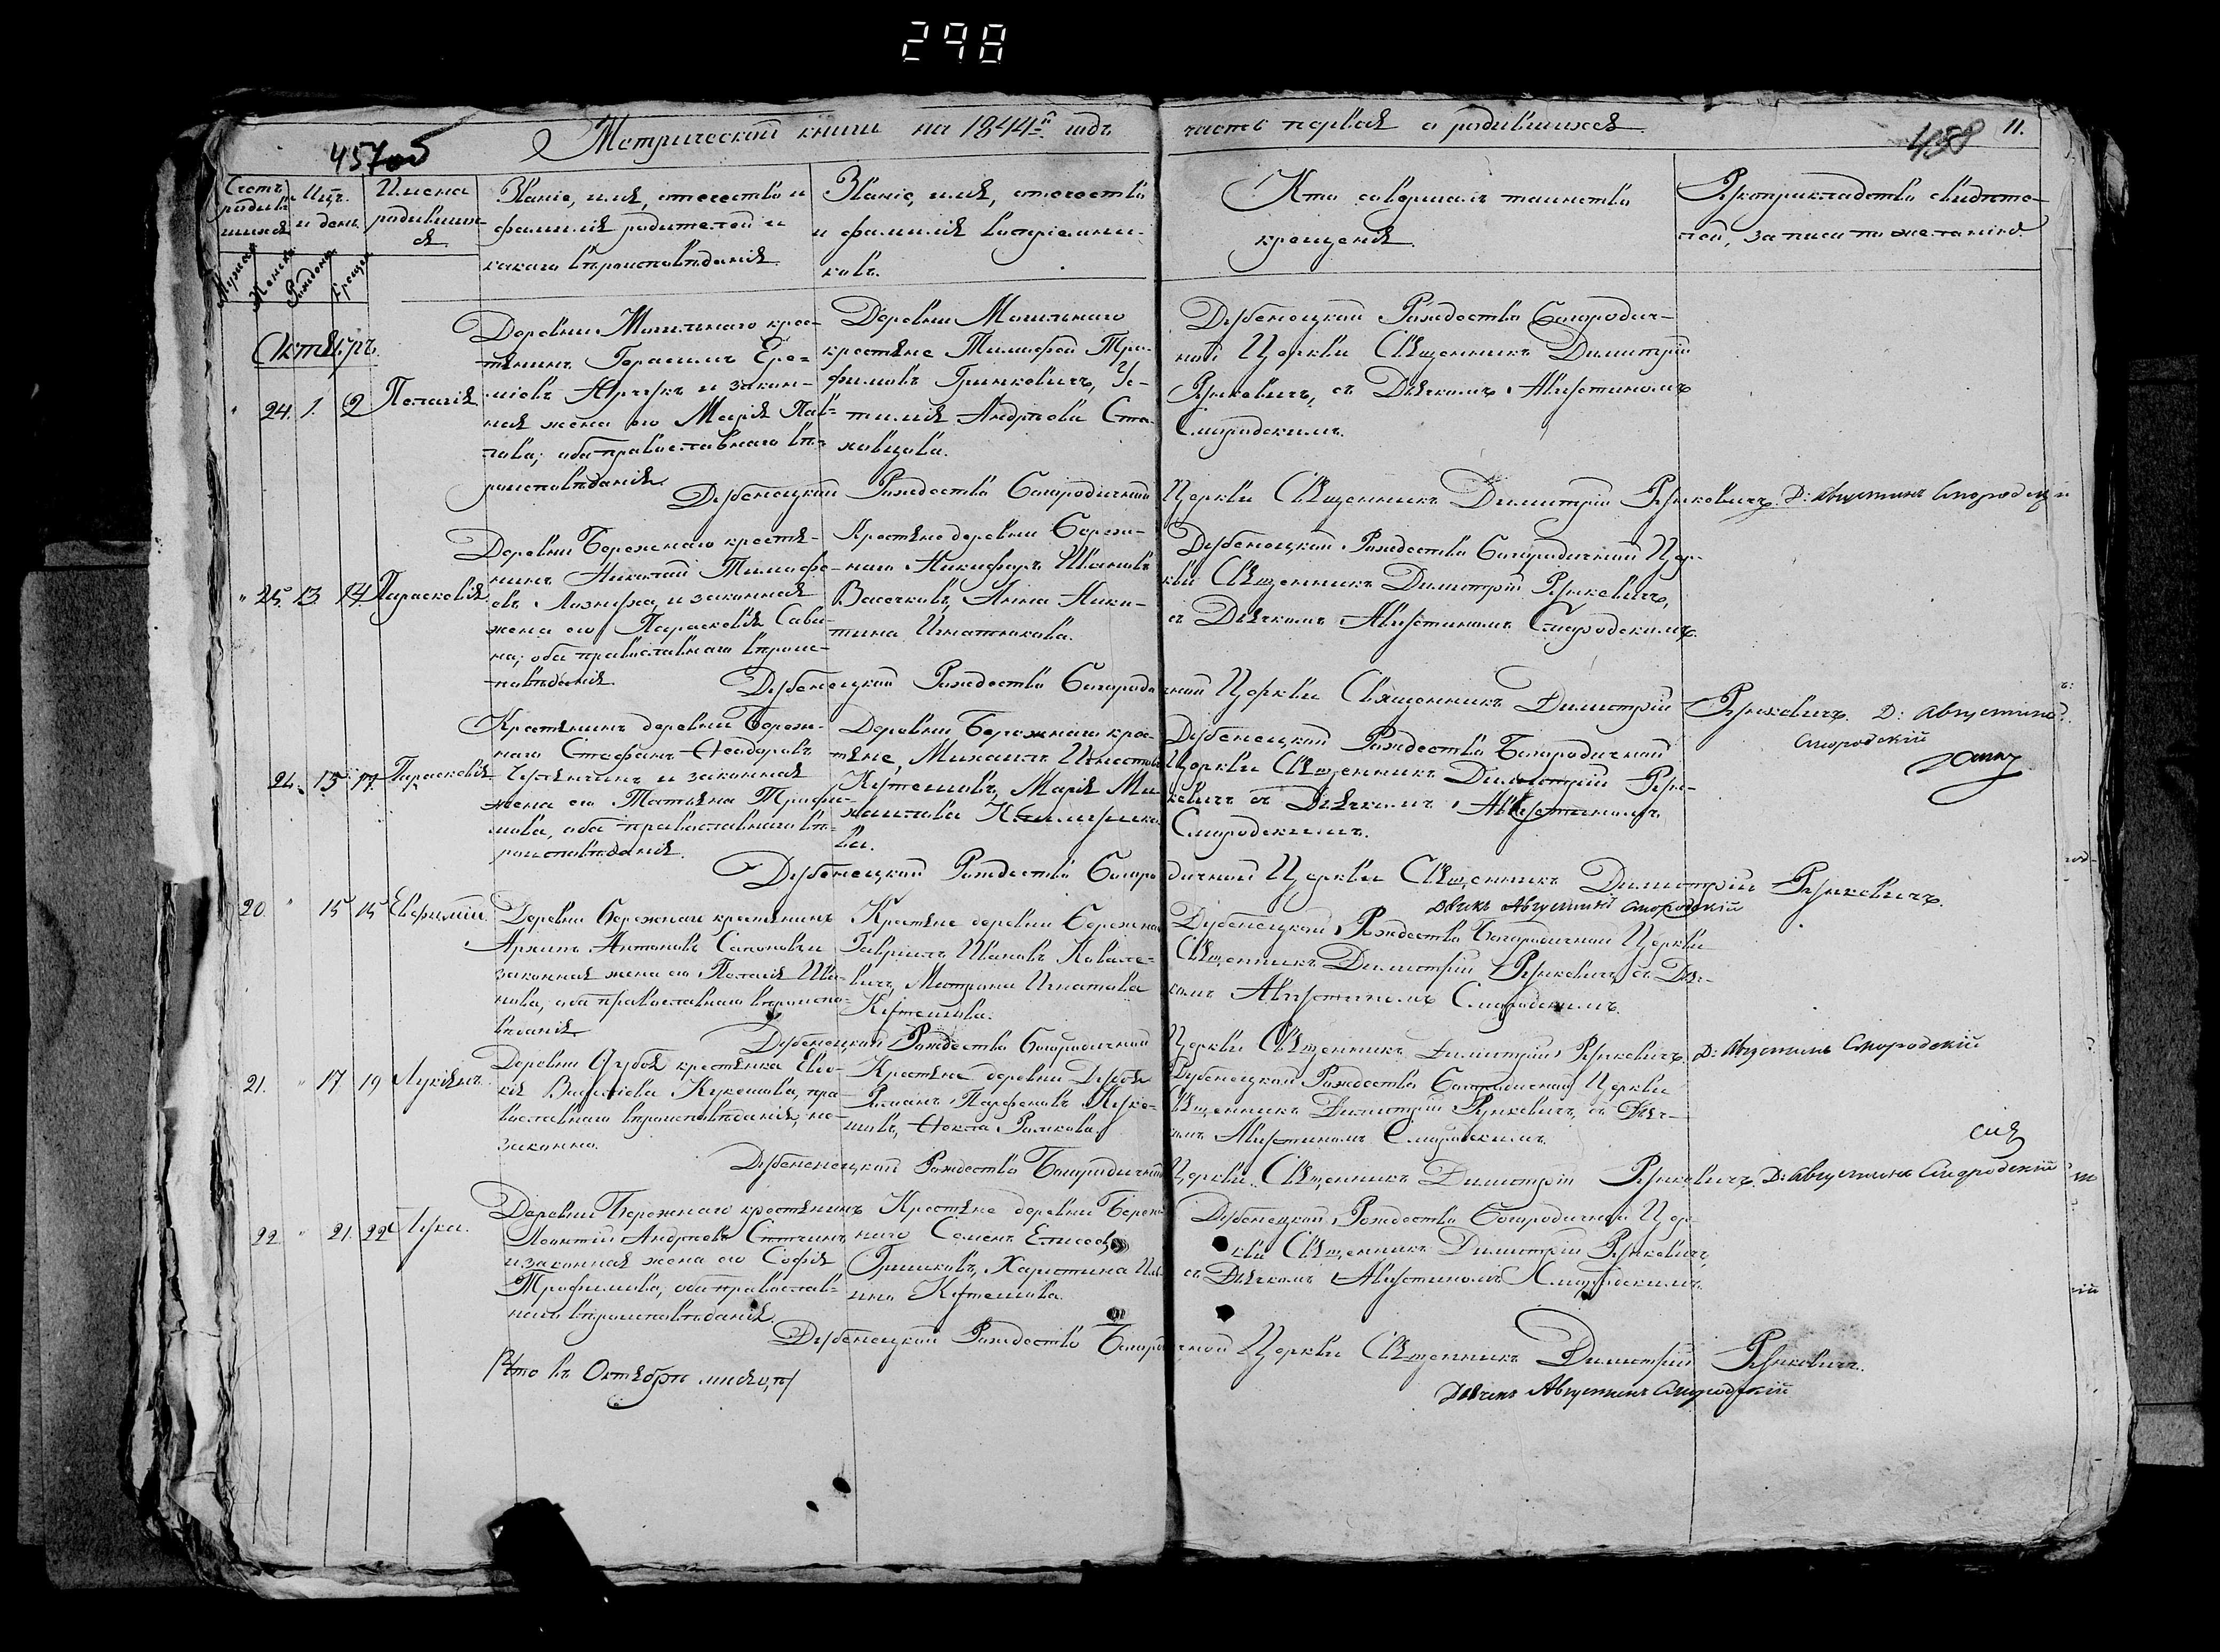 298
Метрической книги на 1844й годъ
часть первая о родившихся.
457об
488
11.
Счетъ родив-
шихся
Мѣц.
и день.
Имена
родивших-
ся
Званіе, имя, отечество и
фамилія родителей и
какого вѣроисповѣданія.
Званіе, имя, отечество
и фамилія воспріемни-
ковъ.
Кто совершалъ таинство
крещенія.
Рукоприкладство свидѣте-
лей, записи по желанію.
Мужеск
Женска
Рожденія
Крещен
Октябрь.
" 24. 1. 2 Пелагія
Деревни Могильнаго крес-
тянинъ Герасимъ Ере-
и закон-
ная жена его Марія Пав-
лова; оба православнаго вѣ-
роисповѣданія.
Деревни Могильнаго
крестяне Тимофей Тро-
фимовъ Гринкевичъ, Ус-
тинія Андреева Ста-
Дубенецкой Рождество Богородич-
ной Церкви Священникъ Димитрій
Рункевичъ, съ Дьячкомъ Августиномъ
Смородскимъ.
Дубенецкой Рождество Богородичной Церкви Священникъ Димитрій Рункевичъ. Д: Августинъ Смородскій
" 25. 13. 14. Параскевія
Деревни Бережнаго крестя-
нинъ Николай Тимофе-
евъ и законная
жена его Параскевія Сави-
на; оба православнаго вѣроис-
повѣданія
Крестяне деревни Береж-
наго Никифоръ Ивановъ
Васечковъ, Анна Ники-
тина Игнаткова.
Дубенецкой Рождество Богородичной Цер-
кви Священникъ Димитрій Рункевичъ,
съ Дьячкомъ Августиномъ Смородскимъ.
Дубенецкой Рождество Богородичной Церкви Священникъ Димитрій Рункевичъ. Д: Августинъ
Смородскій
26. 15 17. Параскевія
Крестянинъ деревни Береж-
наго Стефанъ Ѳеодоровъ
и законная
жена его Татьяна Трофи-
мова, оба православнаго вѣ-
роисповѣданія.
Деревни Бережнаго крес-
тяне, Михаилъ Игнатовъ
Кутешовъ, Марія Ми-
хайлова
ва.
Дубенецкой Рождество Богородичной
Церкви Священникъ Димитрій Рун-
кевичъ съ Дьячкомъ Августиномъ
Смородскимъ.
Дубенецкой Рождество Богородичной Церкви Священникъ Димитрій Рункевичъ.
Дьячекъ Августинъ Смородскій
20. " 15 15 Евфимій.
Деревни Бережнаго крестянинъ
Архипъ Антоновъ и
законная жена его Пелагія Ива-
нова, оба православнаго вѣроиспо-
веданія
Крестяне деревни Бережнаго
Гавріилъ Ивановъ Ковале-
вичъ, Матрона Игнатова
Кутешова.
Дубенецкой Рождество Богородичной Церкви
Священникъ Димитрій Рункевичъ, съ Дьяч-
комъ Августиномъ Смородскимъ.
Дубенецкой Рождество Богородичной Церкви Священникъ Димитрій Рункевичъ. Д: Августинъ Смородскій
21. " 17 19 Лукіянъ.
Деревни Дубоя крестянка Евдо-
кія Василіева Кукешова, пра-
вославнаго вѣроисповѣданія, не-
законно.
Крестяне деревни Дубоя
Романъ Парфеновъ Куке-
шовъ, Ѳекла
Дубенецкой Рождество Богородичной Церкви
Священникъ Димитрій Рункевичъ, съ Дьяч-
комъ Августиномъ Смородскимъ.
Дубенецкой Рождество Богородичной Церкви Священникъ Димитрій Рункевичъ. Д: Августинъ Смородскій
22. " 21. 22 Лука.
Деревни Бережнаго крестянинъ
Леонтій Андреевъ
и законная жена его Софія
Трофимова, оба православ-
наго вѣроисповѣданія.
Крестяне деревни Береж-
наго Семенъ Елисеевъ
Гришковъ, Харитина
Кутешова.
Дубенецкой Рождество Богородичной Цер-
кви Священникъ Димитрій Рункевичъ,
съ Дьячкомъ Августиномъ Смородскимъ.
Дубенецкой Рождество Богородичной Церкви Священникъ Димитрій Рункевичъ.
Дьячекъ Августинъ Смородскій
въ Октябрѣ мѣсяцѣ